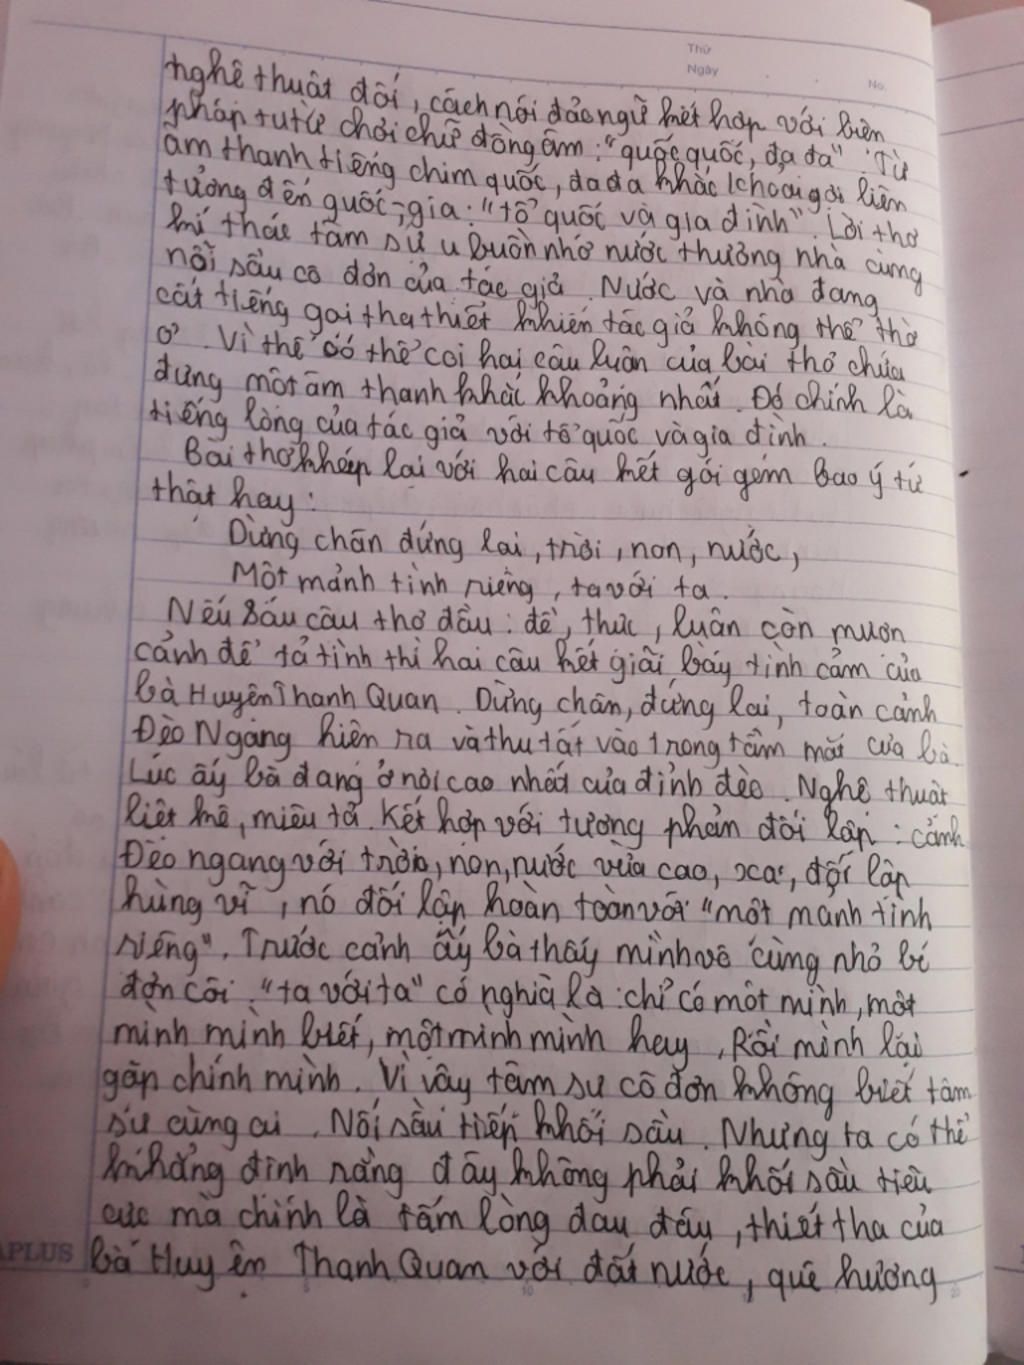 Thứ
Ngày
No.
nghệ thuật đối, cách nói đảo ngữ kết hợp với biện
pháp tu từ chơi chữ đồng âm: "quốc quốc, đa đa". Từ
âm thanh tiếng chim quốc, đa đa khắc khoải gợi liên
tưởng đến quốc, gia: "tổ quốc và gia đình". Lời thơ
kí thác tâm sự u buồn nhớ nước thương nhà cùng
nỗi sầu cô đơn của tác giả. Nước và nhà đang
cất tiếng gọi tha thiết khiến tác giả không thể thờ
ơ. Vì thế có thể coi hai câu luận của bài thơ chứa
đựng một âm thanh khắc khoảng nhất. Đó chính là
tiếng lòng của tác giả với tổ quốc và gia đình.
Bài thơ khép lại với hai câu kết gói gém bao ý tứ
thật hay:
Dừng chân đứng lại, trời, non, nước,
Một mảnh tình riêng, ta với ta.
Nếu sáu câu thơ đầu: đề, thực, luận còn mượn
cảnh để tả tình thì hai câu kết giãi bày tình cảm của
bà Huyện Thanh Quan. Dừng chân, đứng lại, toàn cảnh
Đèo Ngang hiện ra và thu tất vào trong tầm mắt của bà.
Lúc ấy bà đang ở nơi cao nhất của đỉnh đèo. Nghệ thuật
liệt kê, miêu tả. Kết hợp với tương phản đối lập: cảnh
Đèo ngang với trời, non, nước vừa cao, xa, đối lập
hùng vĩ, nó đối lập hoàn toàn với "một mảnh tình
riêng". Trước cảnh ấy bà thấy mình vô cùng nhỏ bé
đơn côi. "ta với ta" có nghĩa là: chỉ có một mình, một
mình mình biết, một mình mình hay. Rồi mình lại
gặp chính mình. Vì vậy tâm sự cô đơn không biết tâm
sự cùng ai. Nỗi sầu tiếp khối sầu. Nhưng ta có thể
khẳng định rằng đây không phải khối sầu tiêu
cực mà chính là tấm lòng đau đáu, thiết tha của
bà Huyện Thanh Quan với đất nước, quê hương
APLUS